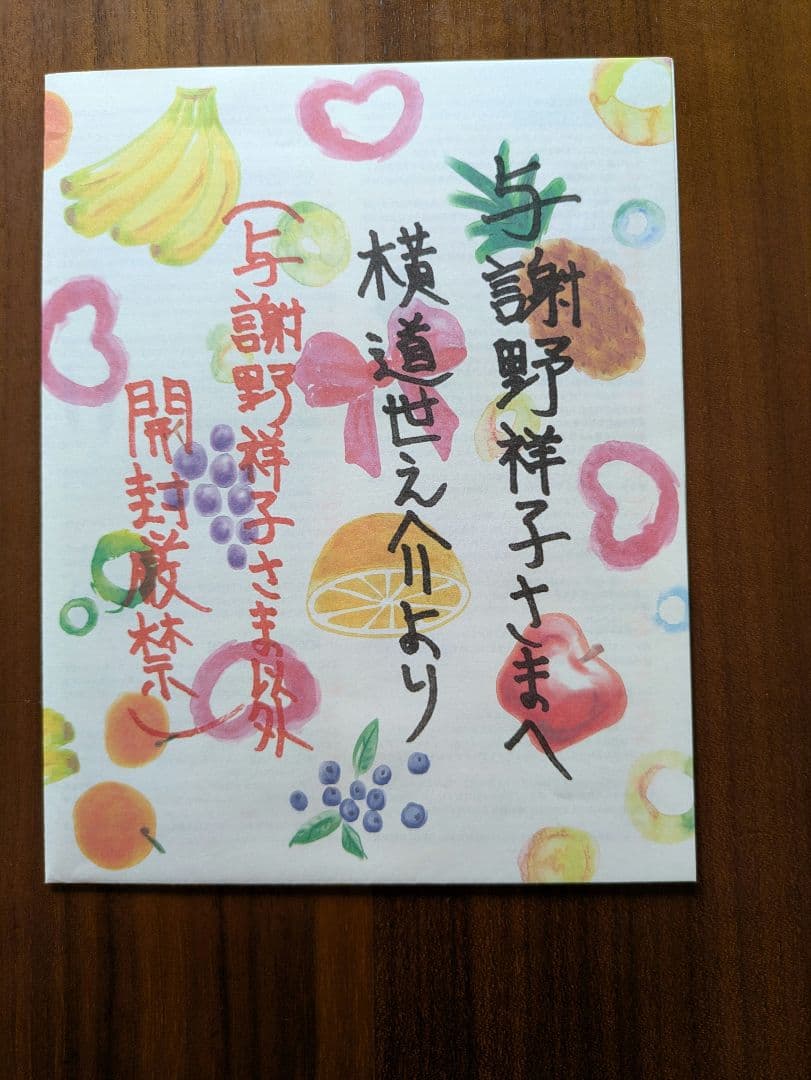 与謝野祥子さまへ
横道世之介より
(与謝野祥子さま以外
開封厳禁)